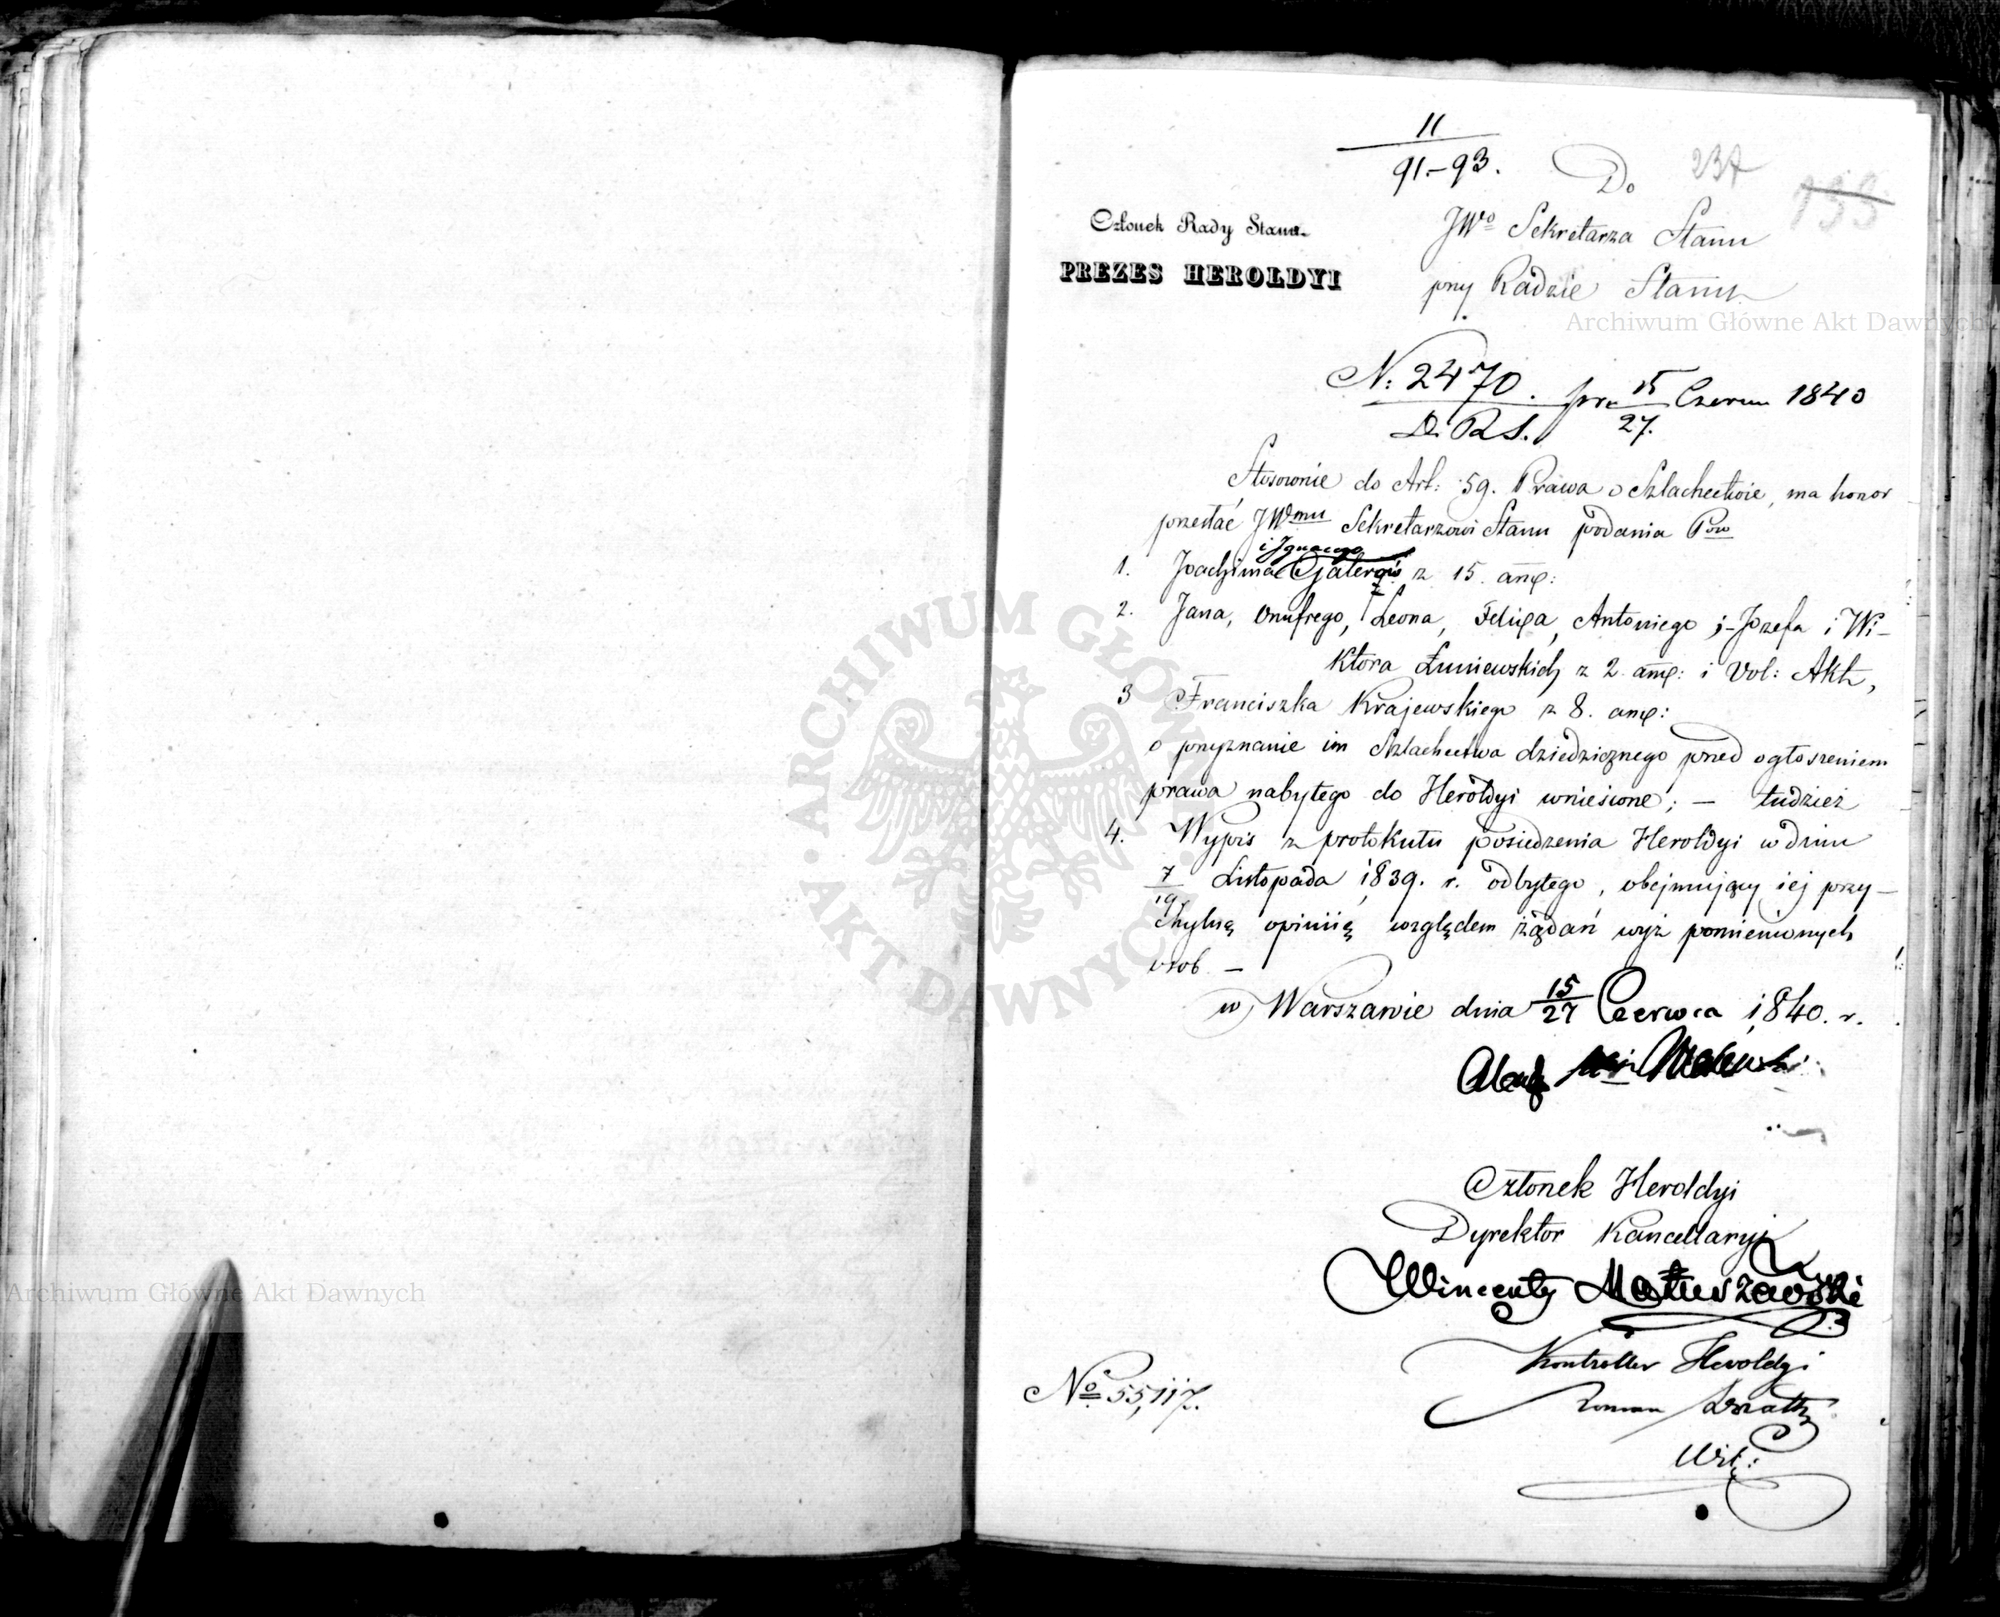 11
91.-93.
Do
237
133
JWo Sekretarza Stanu
przy Radzie Stanu
Członek Rady Stanu
PREZES HEROLDYI
Archiwum Główne Akt Dawnych
N: 2470. pr. 15 Czerw 1840
D. R S. 27.
Stosownie do Art: 59. Prawa o Szlachectwie, ma honor
przesłać JWmu Sekretarzowi Stanu podania Pow
i Ignacego
1. Joachima z 15. anx:
2. Jana, Onufrego, Leona, Felixa, Antoniego, i Józefa i Wi-
ktora Łuniewskich z 2. anx: i Vol: Akt,
3 Franciszka Krajewskiego z 8. anx:
o przyznanie im Szlachectwa dziedzicznego przed ogłoszeniem
prawa nabytego do Heroldyi wniesione; — tudzież
4. Wypis z protokułu posiedzenia Heroldyi w dniu
7/19 Listopada 1839. r. odbytego, obejmujący iej przy-
chylną opiniię względem żądań wyż pomienionych
osob. —
w Warszawie dnia 15/27 Czerwca 1840. r.
Członek Heroldyi
Dyrektor Kancellaryi
Wincenty Matuszewski
Kontroller Heroldyi
Roman
No 55,117.
ARCHIWUM GŁÓWNE · AKT DAWNYCH ·
Archiwum Główne Akt Dawnych